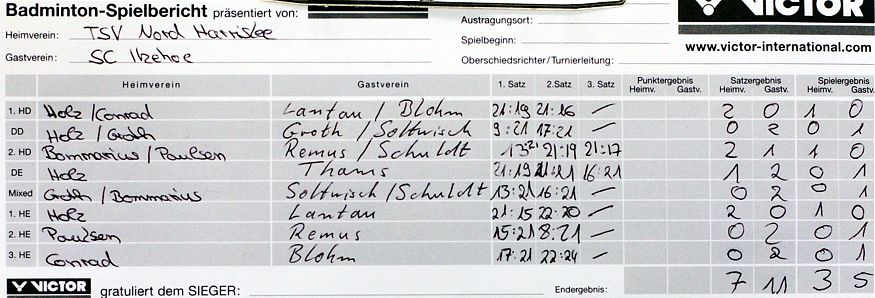 Badminton-Spielbericht präsentiert von:
VICTOR
Heimverein: TSV Nord Harrislee
Gastverein: SC Itzehoe
Austragungsort:
Spielbeginn:
Oberschiedsrichter/Turnierleitung:
www.victor-international.com
Heimverein Gastverein 1. Satz 2. Satz 3. Satz Punktergebnis Heimv. Gastv. Satzergebnis Heimv. Gastv. Spielergebnis Heimv. Gastv.
1. HD Holz / Conrad Lantau / Blohm 21:19 21:16 — 2 0 1 0
DD Holz / Groth Groth / Soltwisch 9:21 17:21 0 2 0 1
2. HD Bommarius / Paulsen Remus / Schuldt 21:19 21:17 2 1 1 0
DE Holz Thams 21:19 16:21 1 2 0 1
Mixed Groth / Bommarius Soltwisch / Schuldt 13:21 16:21 — 0 2 0 1
1. HE Holz Lantau 21:15 22:20 — 2 0 1 0
2. HE Paulsen Remus 15:21 8:21 — 0 2 0 1
3. HE Conrad Blohm 17:21 22:24 — 0 2 0 1
VICTOR gratuliert dem SIEGER: Endergebnis: 7 11 3 5